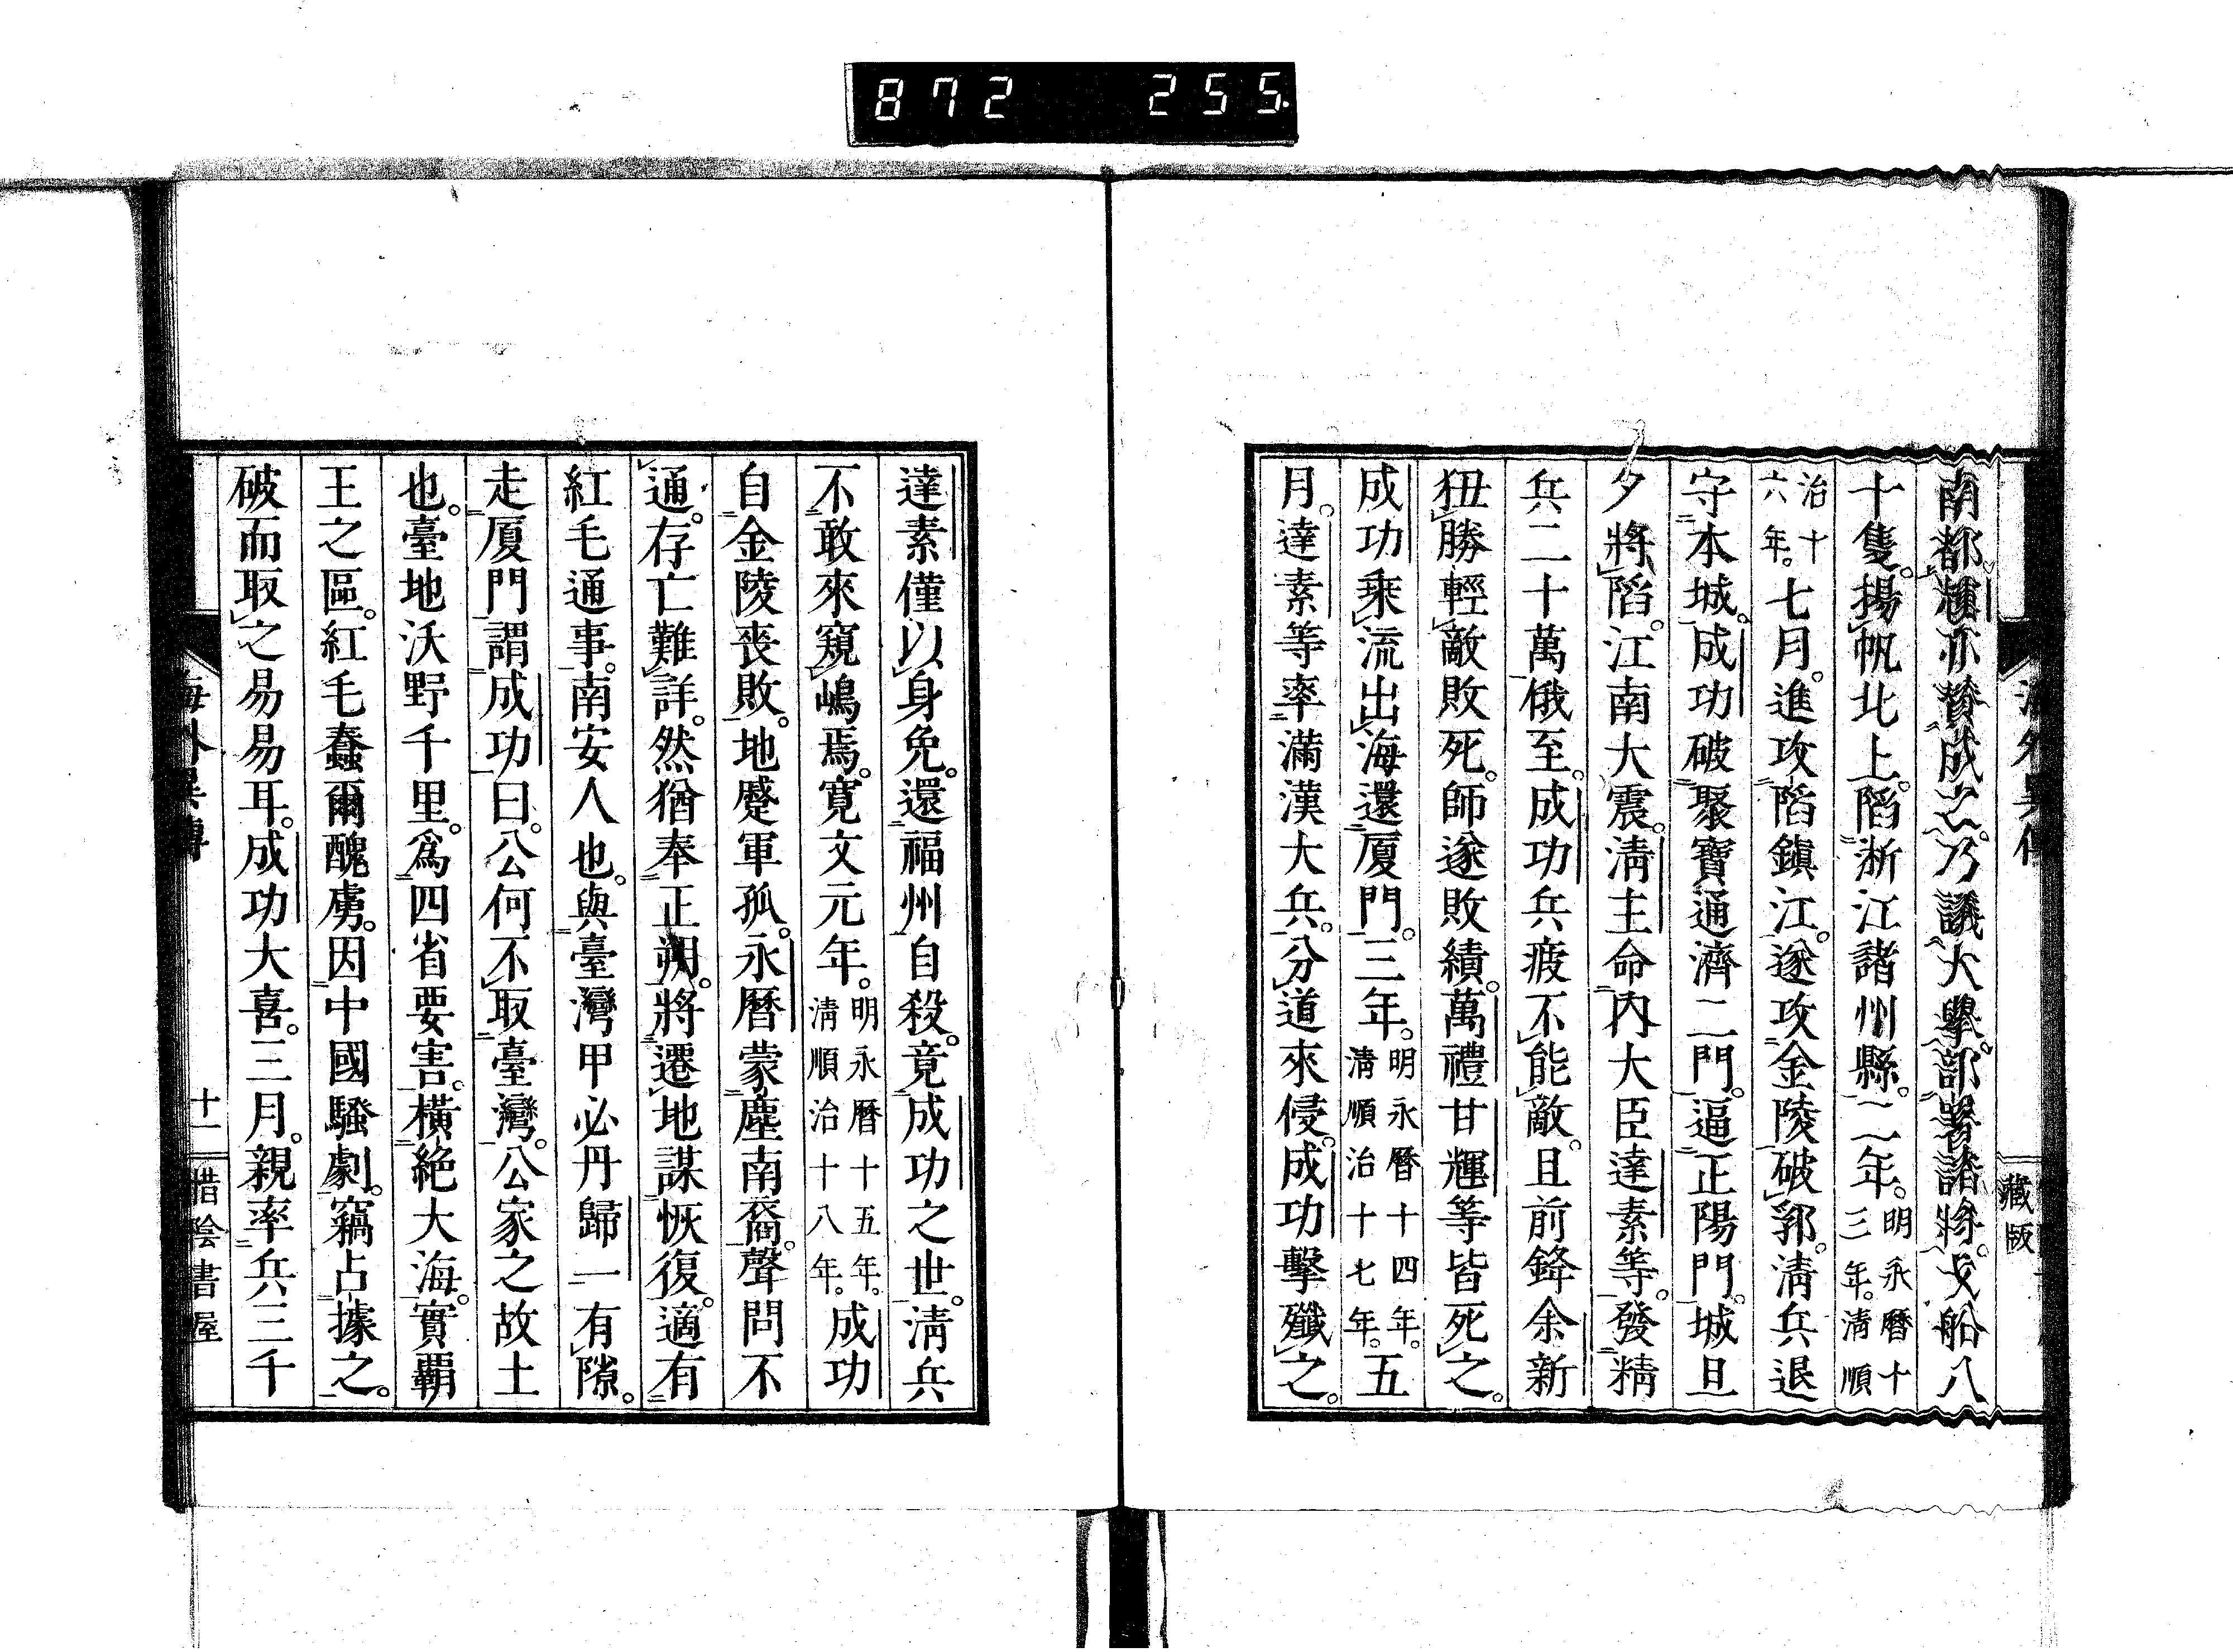 872 255
海外異傳
藏版
南都。輝亦贊成之。乃議大擧。部署諸將。戈船八
十隻。揚帆北上。陷浙江諸州縣。二年。明永曆十三年。淸順
治十六年。七月。進攻陷鎭江。遂攻金陵。破郭。淸兵退
守本城。成功破聚寶通濟二門。逼正陽門。城旦
夕將陷。江南大震。淸主命內大臣達素等。發精
兵二十萬俄至。成功兵疲不能敵。且前鋒余新
狃勝輕敵敗死。師遂敗績。萬禮甘輝等皆死之。
成功乘流出海還厦門。三年。明永曆十四年。淸順治十七年。五
月。達素等率滿漢大兵。分道來侵。成功擊殲之。
達素僅以身免。還福州自殺。竟成功之世。淸兵
不敢來窺嶋焉。寛文元年。明永曆十五年。淸順治十八年。成功
自金陵喪敗。地蹙軍孤。永曆蒙塵南裔。聲問不
通。存亡難詳。然猶奉正朔。將遷地謀恢復。適有
紅毛通事。南安人也。與臺灣甲必丹歸一有隙。
走厦門謂成功曰。公何不取臺灣。公家之故土
也。臺地沃野千里。爲四省要害。橫絕大海。實覇
王之區。紅毛蠢爾醜虜。因中國騷劇。竊占據之。
破而取之易易耳。成功大喜。三月。親率兵三千
海外異傳
十一
惜陰書屋